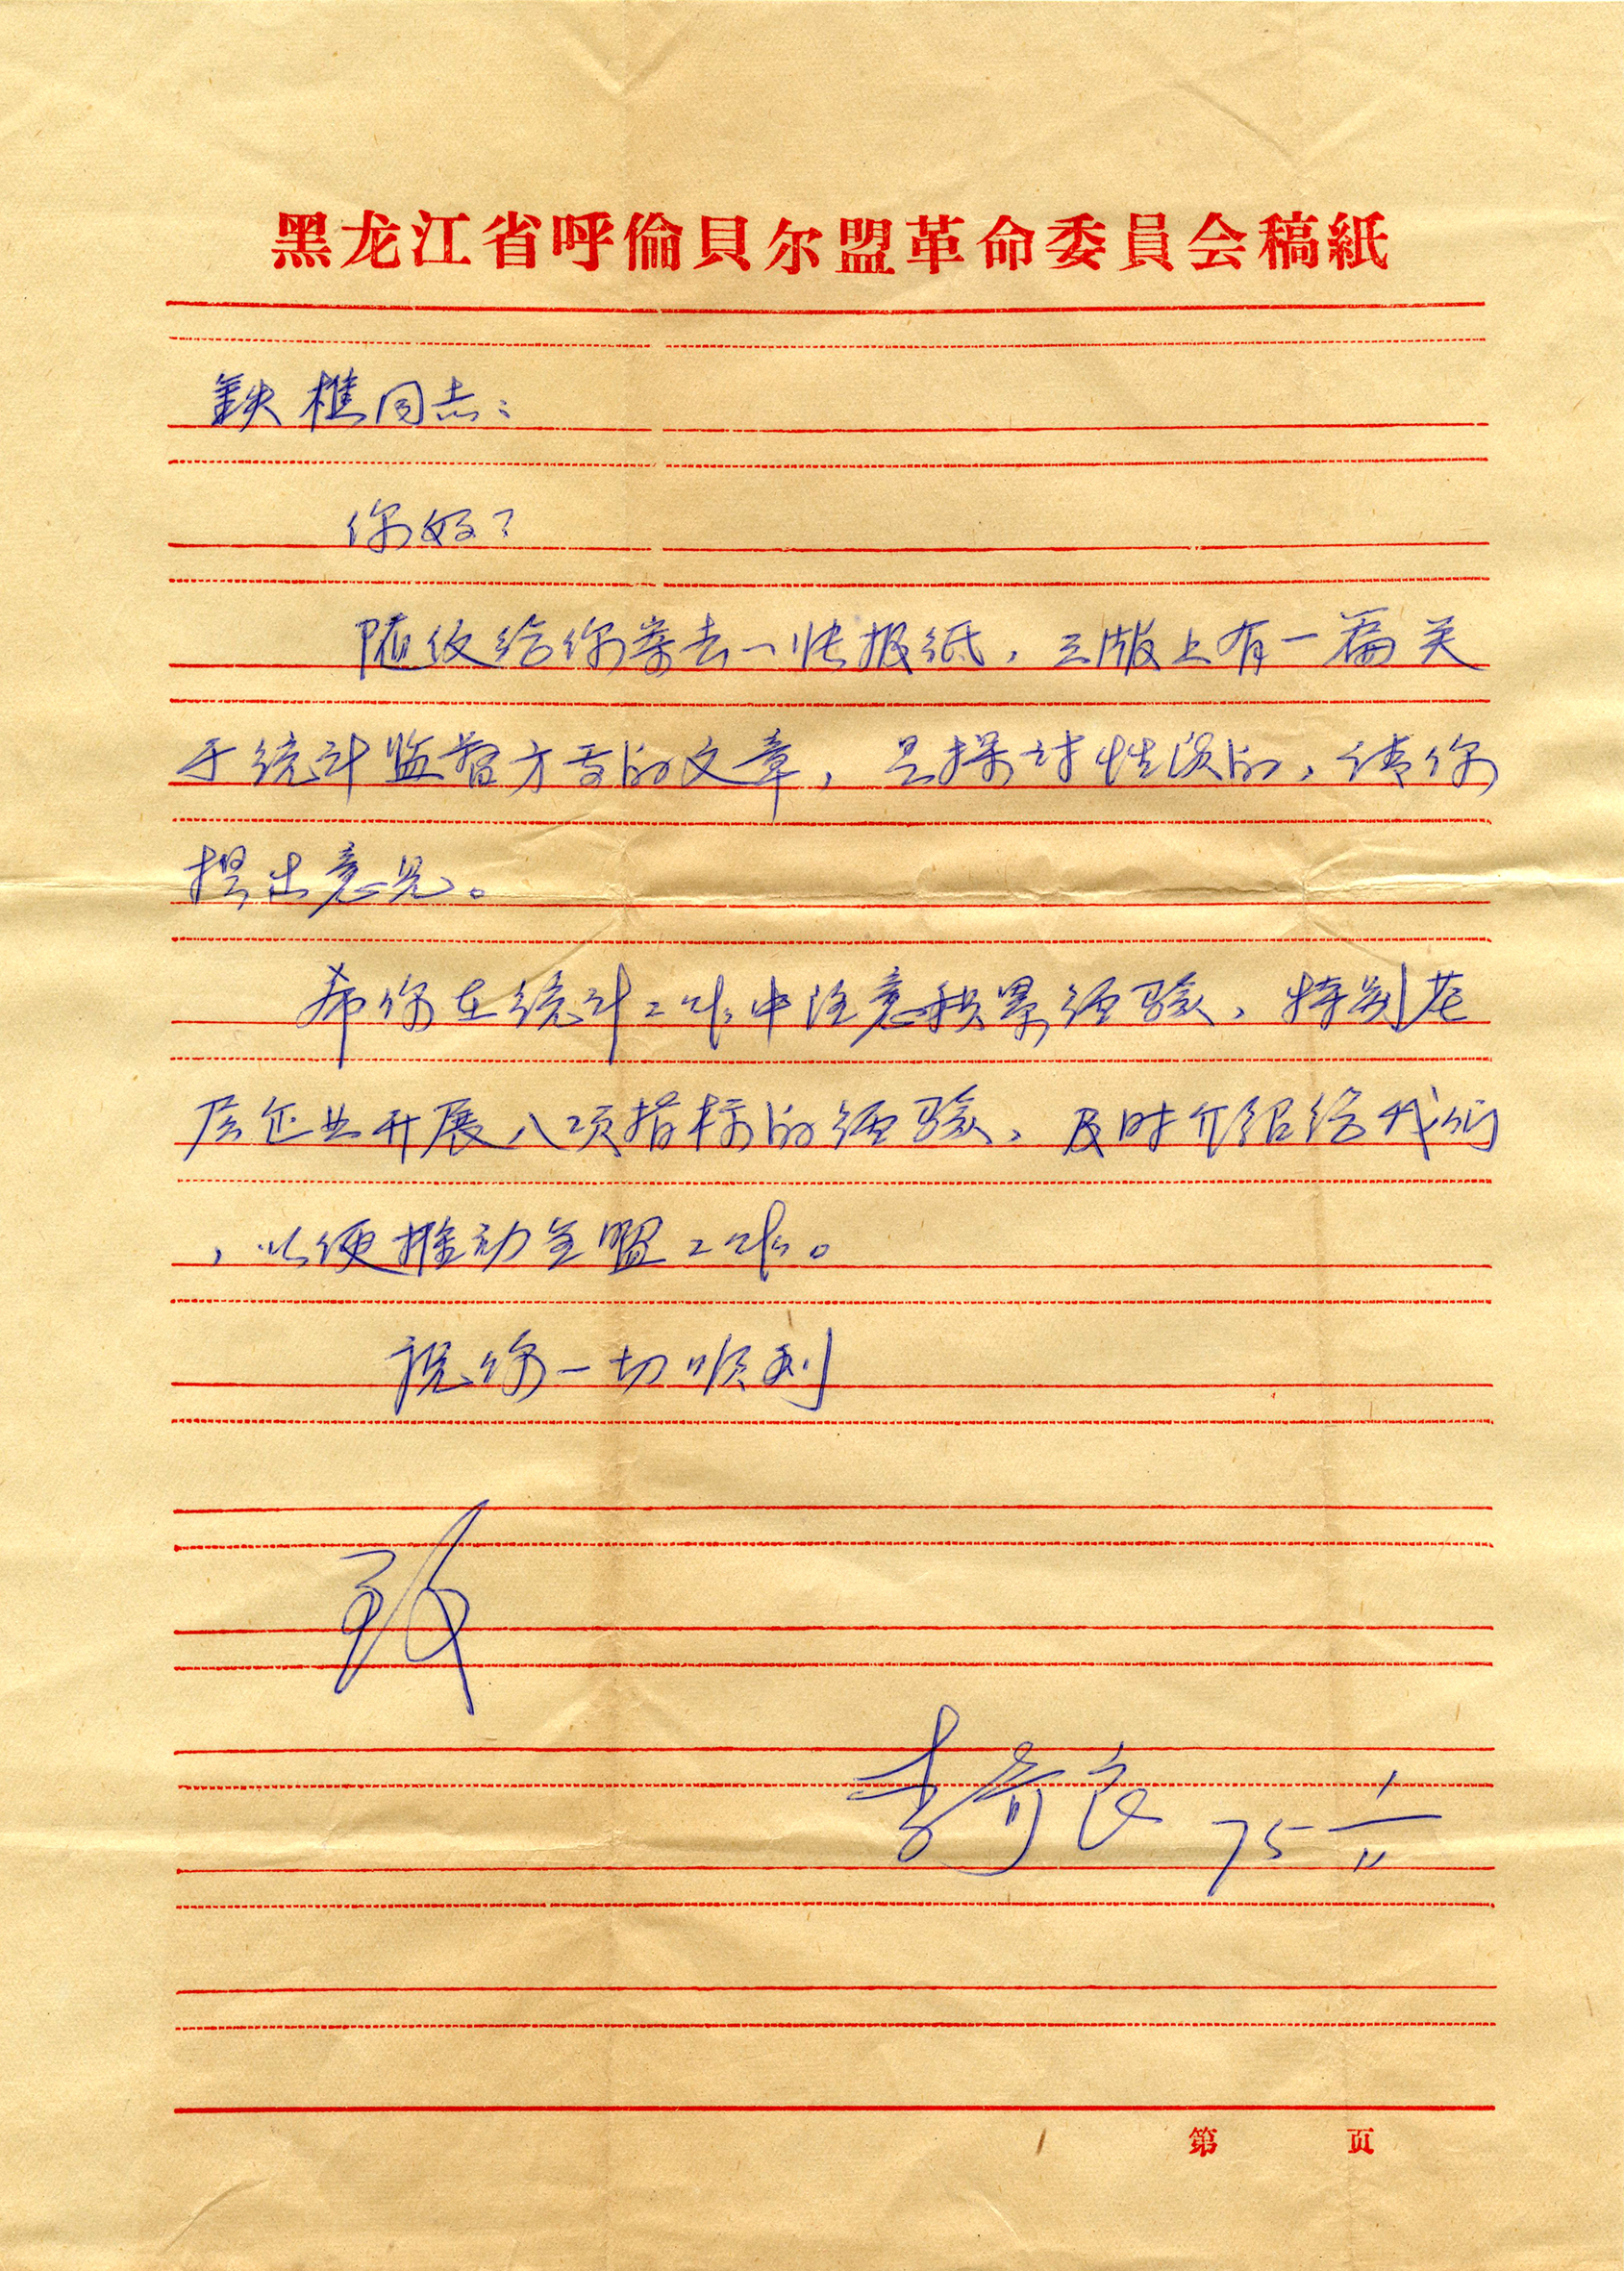 黑龙江省呼倫貝尔盟革命委員会稿紙
鉄樵同志：
你好？
随信给你寄去一张报纸，三版上有一篇关
于统计监督方面的文章，是探讨性质的，请你
提出意见。
希你在统计工作中注意积累经验，特别基
层企业开展八项指标的经验，及时介绍给我们
，以便推动全盟工作。
祝你一切顺利
致
李奇良 75 1/11
第 页